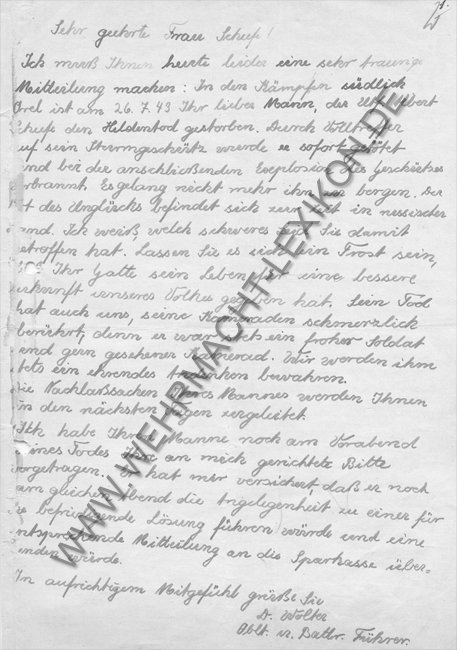 Sehr geehrte Frau Schefe!
Ich muß Ihnen heute leider eine sehr traurige
Mitteilung machen: In den Kämpfen südlich
Orel ist am 26.7.43 Ihr lieber Mann, der Uffz. Albert
Scheefe den Heldentod gestorben. Durch Volltreffer
auf sein Sturmgeschütz wurde er sofort getötet
und bei der anschließenden Explosion des Geschützes
verbrannt. Es gelang nicht mehr ihn zu bergen. Der
Ort des Unglücks befindet sich zur Zeit in russischer
Hand. Ich weiß, welch schweres Leid Sie damit
getroffen hat. Lassen Sie es sich ein Trost sein,
daß Ihr Gatte sein Leben für eine bessere
Zukunft unseres Volkes gegeben hat. Sein Tod
hat auch uns, seine Kameraden schmerzlich
berührt, denn er war stets ein froher Soldat
und gern gesehener Kamerad. Wir werden ihm
stets ein ehrendes Gedenken bewahren.
Die Nachlaßsachen Ihres Mannes werden Ihnen
in den nächsten Tagen zugeleitet.
Ich habe Ihrem Manne noch am Vorabend
seines Todes Ihre an mich gerichtete Bitte
vorgetragen. Er hat mir versichert, daß er noch
am gleichen Abend die Angelegenheit zu einer für
Sie befriedigende Lösung führen würde und eine
entsprechende Mitteilung an die Sparkasse über-
senden würde.
In aufrichtigem Mitgefühl grüße Sie
D. Wolter
Oblt. u. Battr. Führer.
WWW.WEHRMACHT-LEXIKON.DE